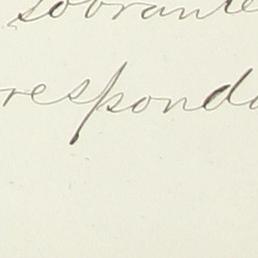 sobrante
responda